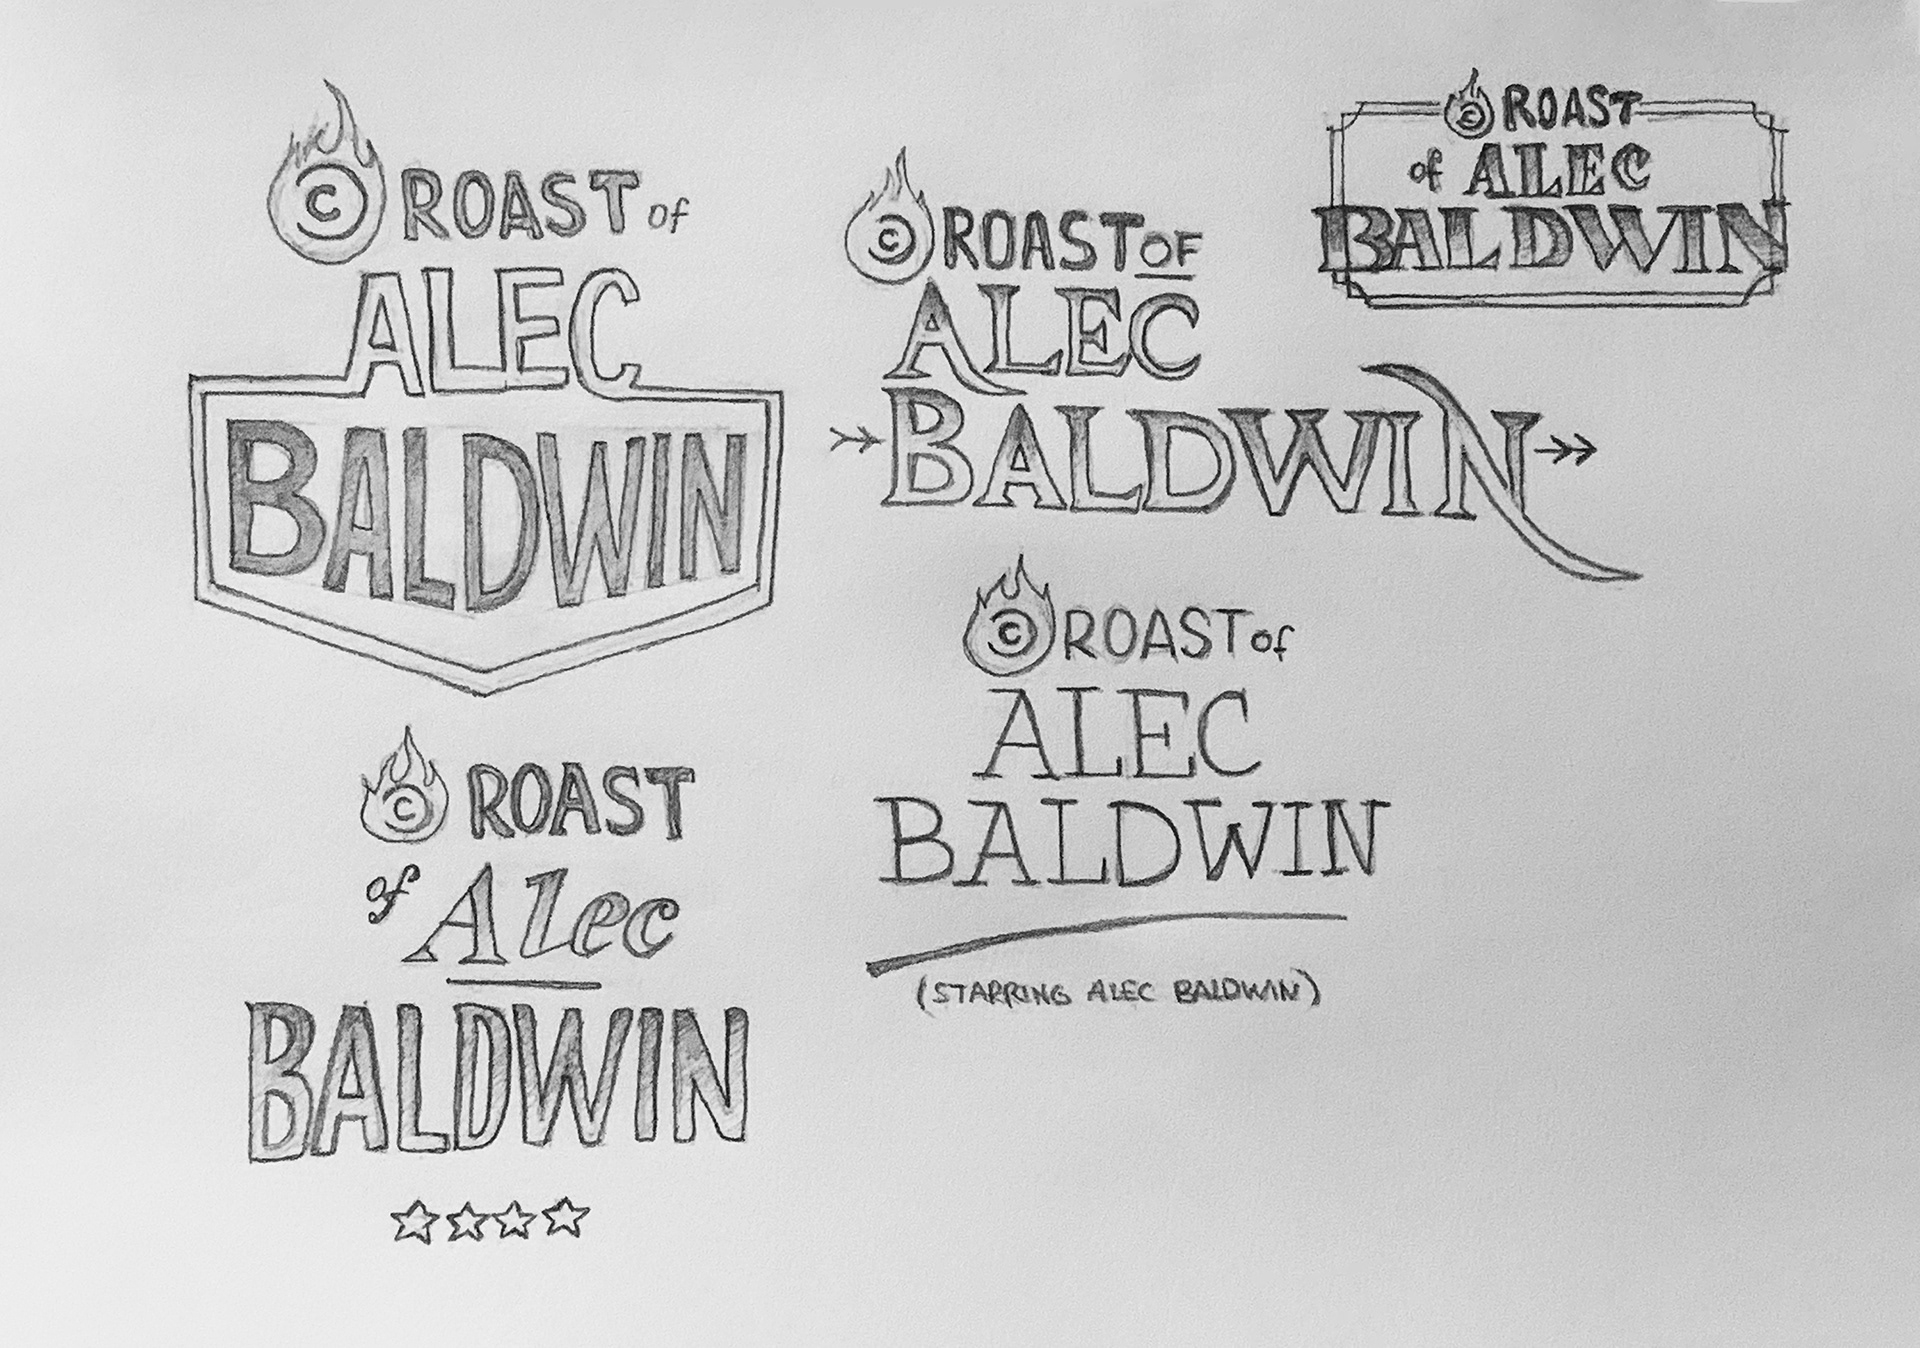 © ROAST of
ALEC
BALDWIN
© ROAST OF
ALEC
BALDWIN
© ROAST
of ALEC
BALDWIN
© ROAST of
ALEC
BALDWIN
(STARRING ALEC BALDWIN)
© ROAST
of Alec
BALDWIN